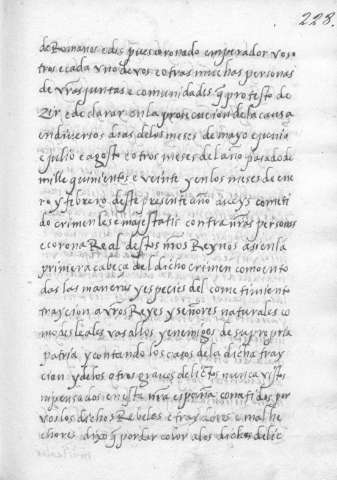 228.
de Romanos e despues coronado emperador voso
tros e cada vno de vos e otras muchas personas
de vras juntas e comunidades q̃ protesto de
zir e declarar en la prosecucion de la causa
en diversos dias de los meses de mayo e junio
e julio e agosto e otros meses del año pasado de
mill e quinientos e veinte y en los meses de ene
ro y febrero deste presente año aveys cometi
do crimen lese magestatis contra nr̃as personas
e corona Real destos nr̃os Reynos asi en la
primera cabeça del dicho crimen como en to
das las maneras y especies del cometimiento
traycion a vr̃os Reyes y señores naturales co
mo desleales vasallos y enemigos de su propria
patria y contando los casos de la dicha tray
cion y de los otros graves delictos nunca vistos
ni pensados en esta nr̃a españa cometidos por
vos los dichos Rebeles e traydores e malhe
chores dixo q̃ por dar color a los dichos delic